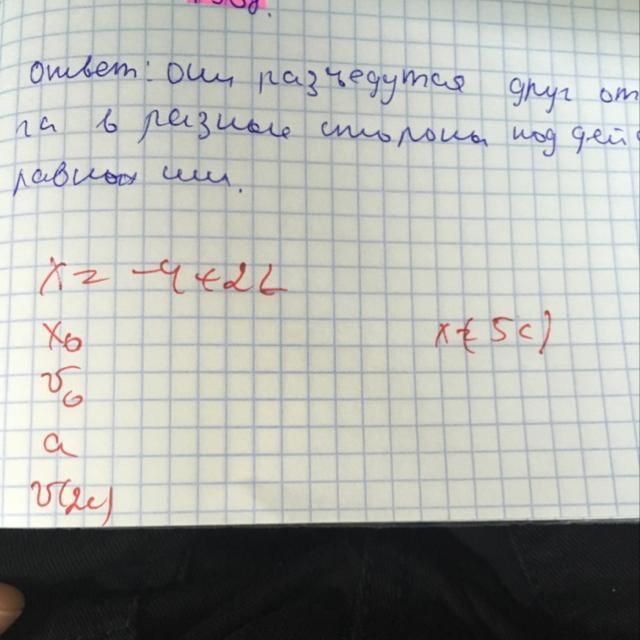 ответ: они разъедутся друг от
га в разные стороны под дей
равных сил.
x = -4+2t
x₀
x(5c)
v₀
a
v(2c)